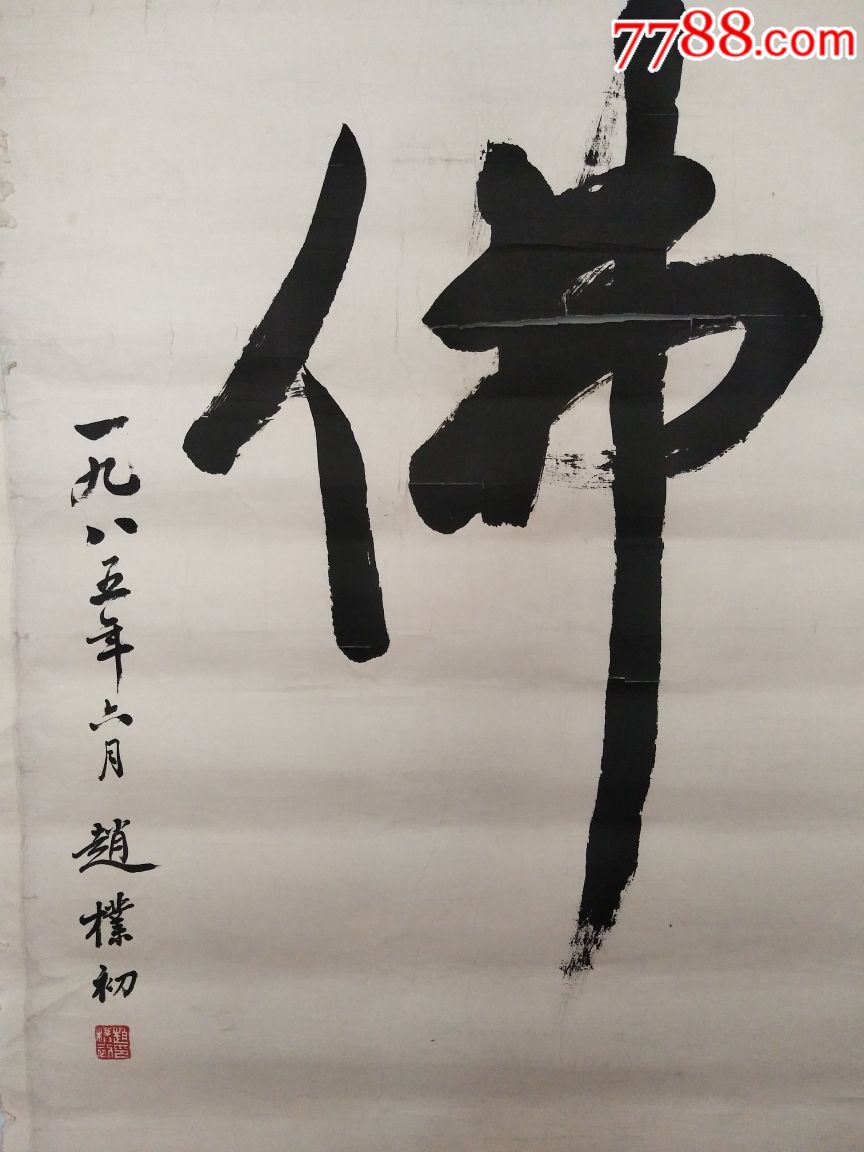 7788.com
佛
一九八五年六月 趙樸初
趙樸初印